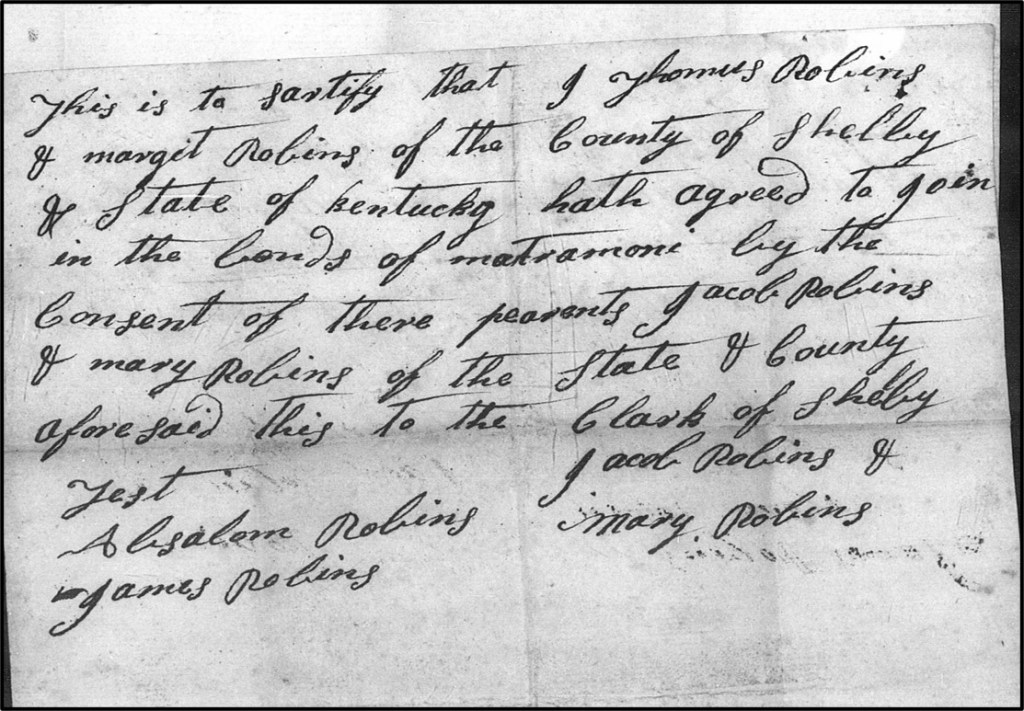 This is to sartify that I Thomus Robins
& margit Robins of the County of Shelby
& State of kentucky hath agreed to join
in the bonds of matramoni by the
Consent of there pearents Jacob Robins
& mary Robins of the State & County
aforesaid this to the Clark of Shelby
Jacob Robins &
Test
Mary Robins
Absalom Robins
James Robins